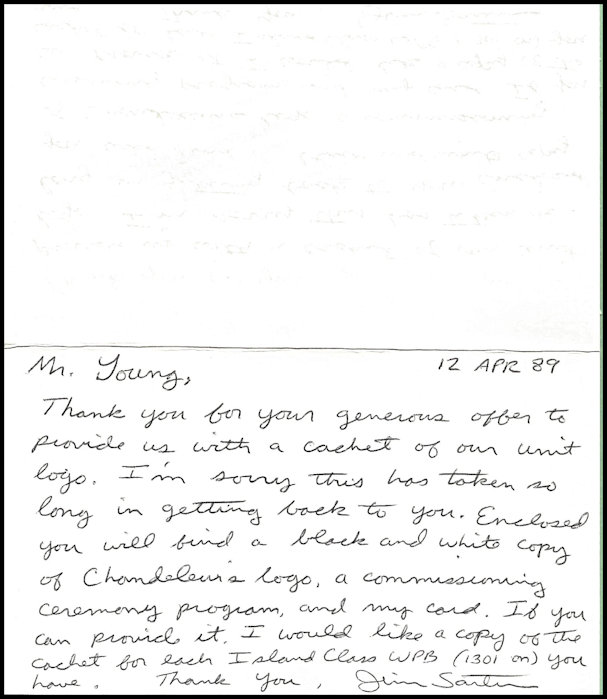 Mr. Young,
12 APR 89
Thank you for your generous offer to
provide us with a cachet of our unit
logo. I'm sorry this has taken so
long in getting back to you. Enclosed
you will find a black and white copy
of Chandeleur's logo, a commissioning
ceremony program, and my card. If you
can provide it, I would like a copy of the
cachet for each Island Class WPB (1301 on) you
have. Thank You, Jim